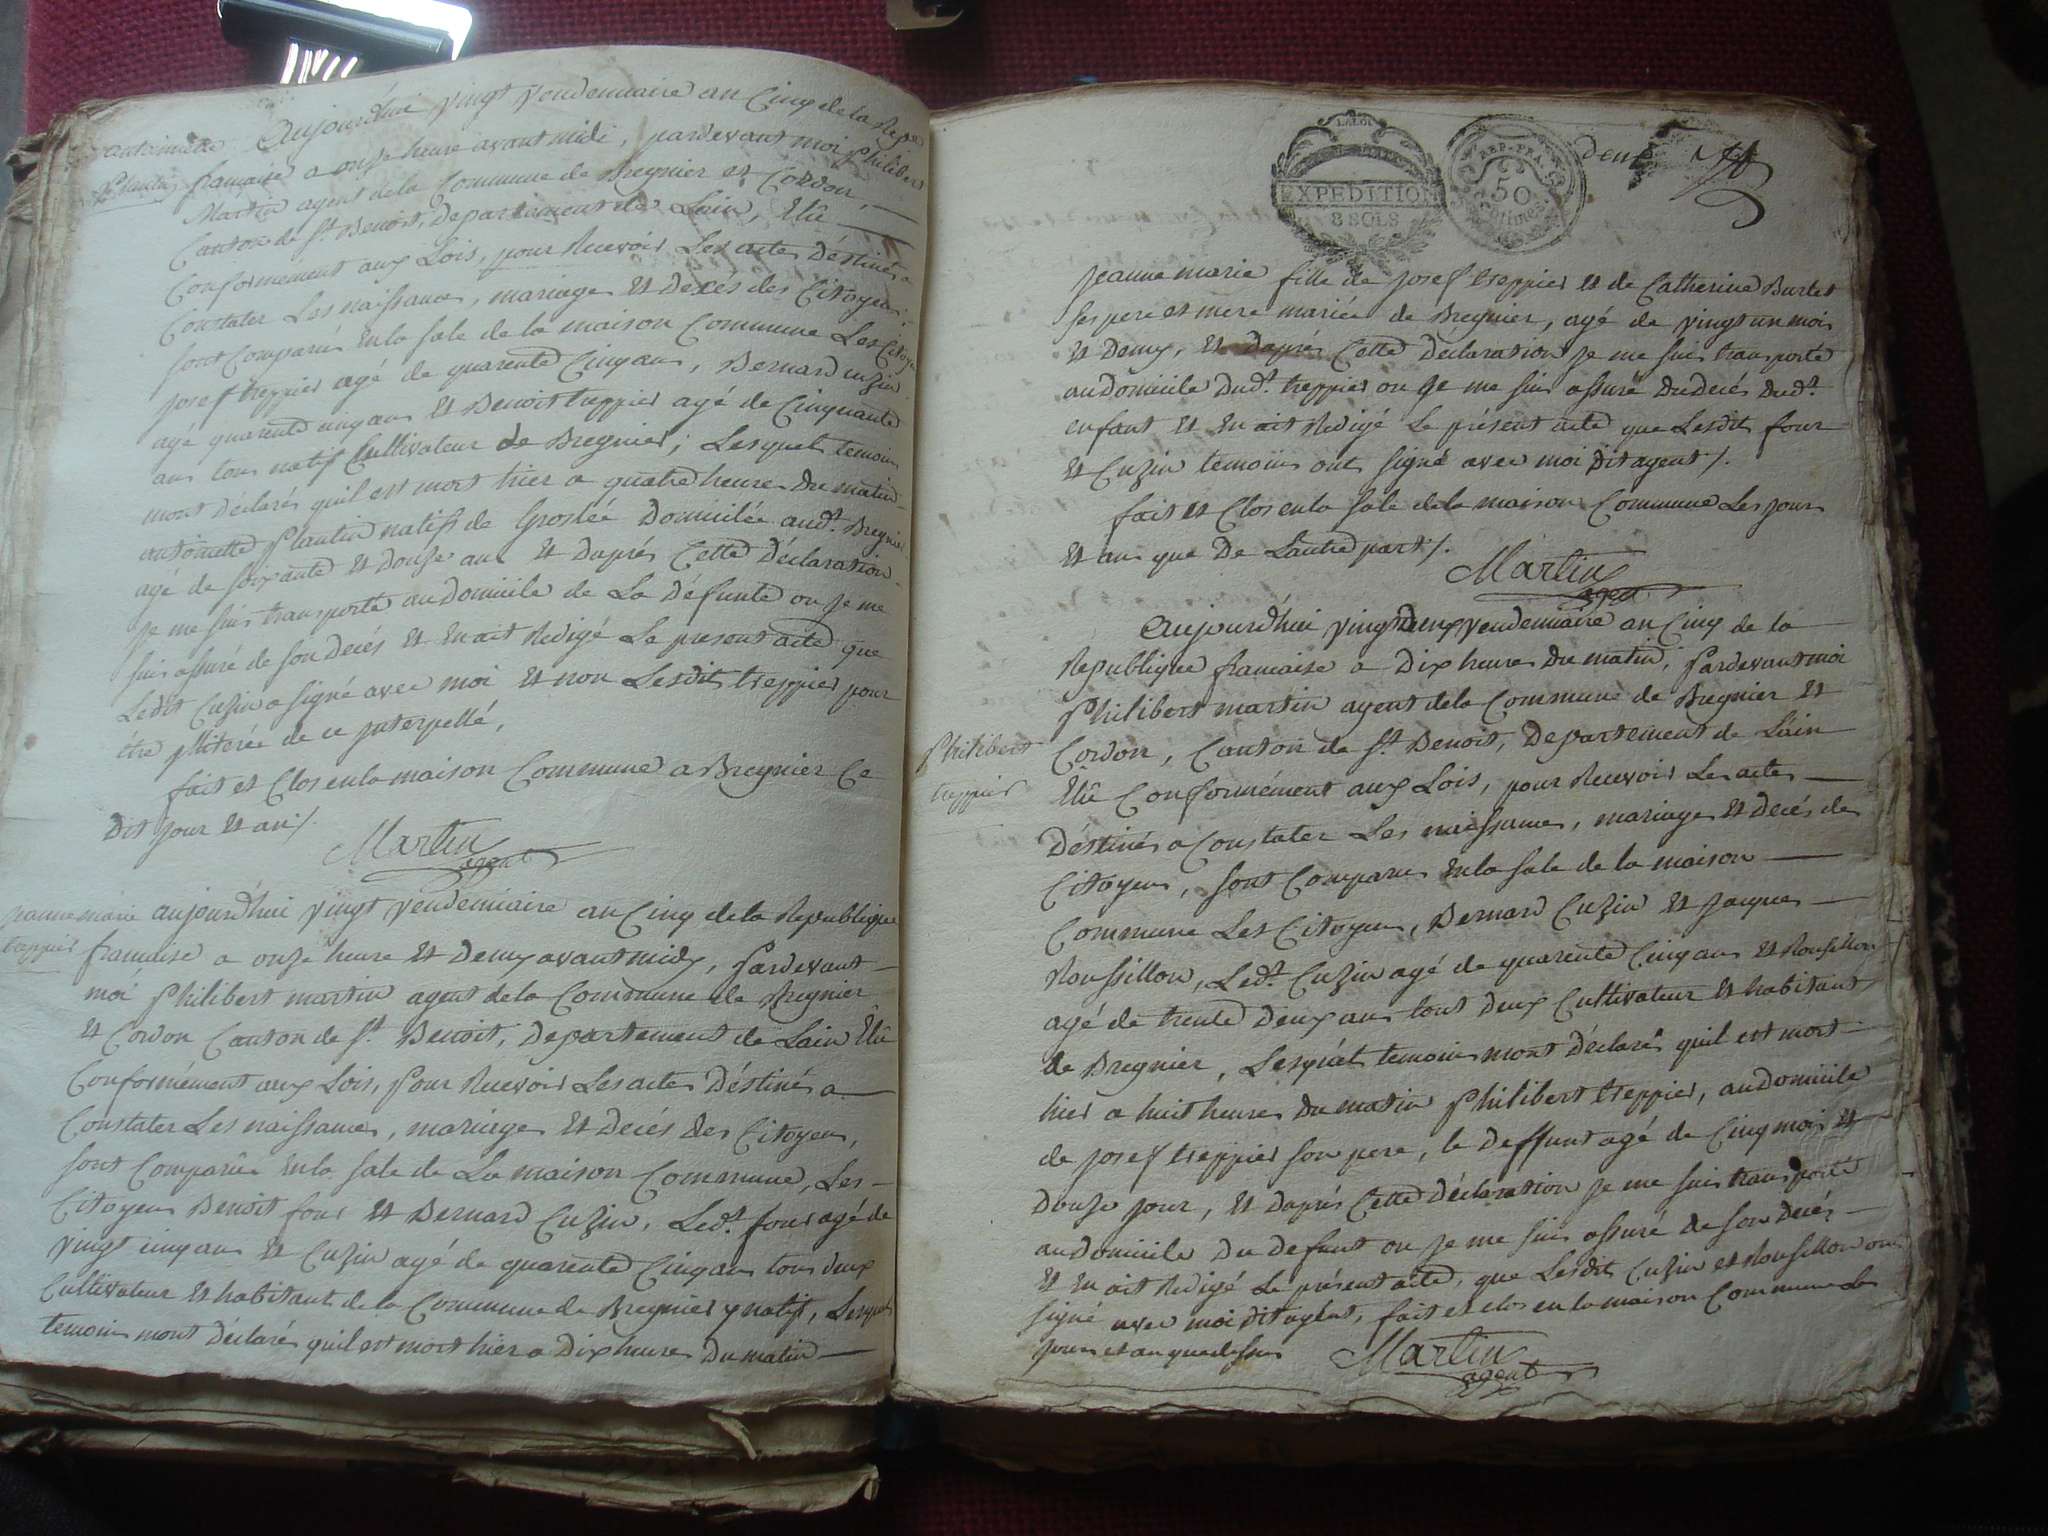 antoinette
Plantin
Aujourdhui vingt vendemiaire an Cinq de la Repu
francaise a onze heure avant midi, pardevant moi philibert
Martin agent dela Commune de Bregnier et Cordon,
Canton de St. Benoit, Departement de Lain, Elû
Conformément aux Lois, pour Recevoir Les actes Déstinés a
Constater Les naissances, mariages Et Decés des Citoyens,
sont Comparus En la sale de la maison Commune Les Citoyens
josef treppier agé de quarente Cinq ans, Bernard cuzin
agé quarente cinq ans Et Benoit treppier agé de Cinquante
ans tous natif Cultivateur de Bregnier; Lesquels temoins
mont déclarés quil est mort hier a quatre heures du matin
antoinette Plantin natif de Groslée Domiciliée audt. Bregnier
agé de soixante Et Douze ans Et Daprés Cette Déclaration
je me suis transporté au domicile de La Défunte ou je me
suis assuré de son Decés Et En ait Redigé Le present acte que
Ledit Cuzin a signé avec moi Et non Lesdits treppier pour
être illiterée de ce jnterpellé,
fait et Clos en la maison Commune a Bregnier Ce
Dit jour Et an /.
Martin
agent
jeanne marie
treppier
aujourdhui vingt vendemiaire an Cinq de la Republique
francaise a onze heure Et Demy avant midy, Pardevant
moi Philibert martin agent dela Commune de Bregnier
Et Cordon Canton de St. Benoit, Departement de Lain Elû
Conformément aux Lois, Pour Recevoir Les actes Déstinés a
Constater Les naissances, mariages Et Decés des Citoyens,
sont Comparûs En la sale de La maison Commune, Les
Citoyens Benoit four Et Bernard Cuzin, Ledt. four agé de
vingt cinq ans Et Cuzin agé de quarente Cinq ans tous deux
Cultivateur Et habitant de la Commune de Bregnier y natif, Lesquels
temoins mont déclarés quil est mort hier a Dix heures Du matin
LA LOI
EXPEDITION
8 SOLS
REP. FRA.
50
Centimes
deux
jeanne marie fille de josef treppier Et de Catherine Burlet
ses pere et mere mariés de Bregnier, agé de vingt un mois
Et Demy, Et Daprés Cette Declaration je me suis transporté
au Domicile Dudt. treppier ou je me suis assuré Du Decés Dudt.
enfant Et En ait Redigé Le présent acte que Lesdits four
Et Cuzin temoins onts signé avec moi Dit agent /.
fait et Clos en la sale de la maison Commune Les jours
Et an que De Lautre part /.
Martin
agent
Aujourdhui vingt deux vendemiaire an Cinq de la
Republique francaise a Dix heures Du matin, Pardevant moi
Philibert martin agent dela Commune de Bregnier Et
Philibert
treppier
Cordon, Canton de St. Benoit, Departement de Lain
Elû Conformément aux Lois, pour Recevoir Les actes
Destinés a Constater Les naissances, mariages Et Decés des
Citoyens, sont Comparus En la sale de la maison
Commune Les Citoyens, Bernard Cuzin Et jacques
Roussillon, Ledt. Cuzin agé de quarente Cinq ans Et Roussillon
agé de trente Deux ans tout deux Cultivateur Et habitant
de Bregnier, Lesquels temoins mont déclarés quil est mort
hier a huit heures du matin Philibert treppier, au domicile
de josef treppier son pere, le Deffunt agé de Cinq mois Et
Douze jour, Et Daprés Cette Déclaration je me suis transporté
au Domicile Du Defunt ou je me suis assuré de son Decés
Et En ait Redigé Le présent acte, que Lesdits Cuzin et Roussillon ont
signé avec moi dit agent, fait et clos en la maison Commune Les
jours et an que dessus
Martin
agent